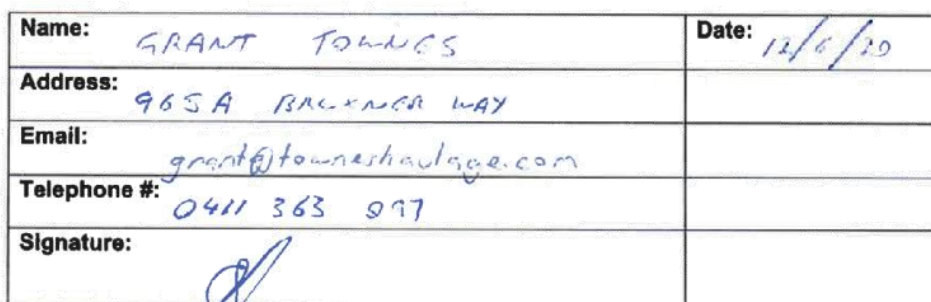 Name: GRANT TOWNES Date: 12/6/20
Address: 965A BRUXNER WAY
Email: grant@towneshaulage.com
Telephone #: 0411 363 097
Signature: